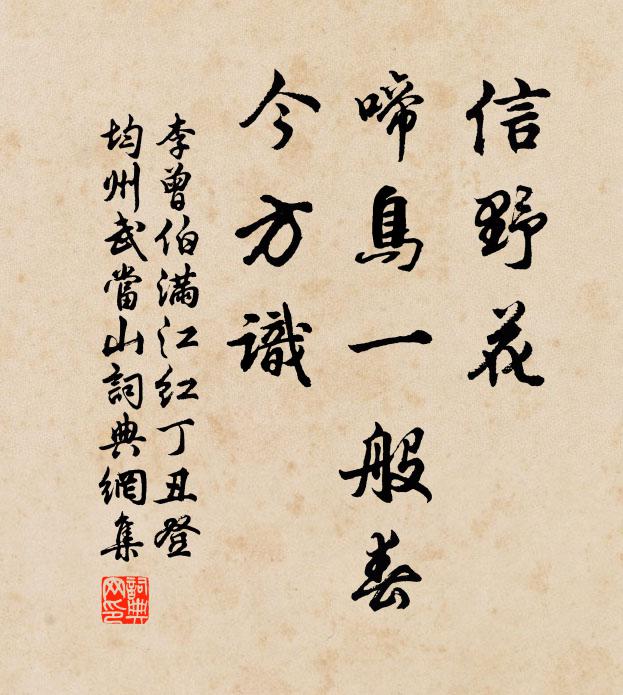 信野花
啼鳥一般春
今方識
李曾伯滿江红丁丑登
均州武當山詞典網集
詞典網印